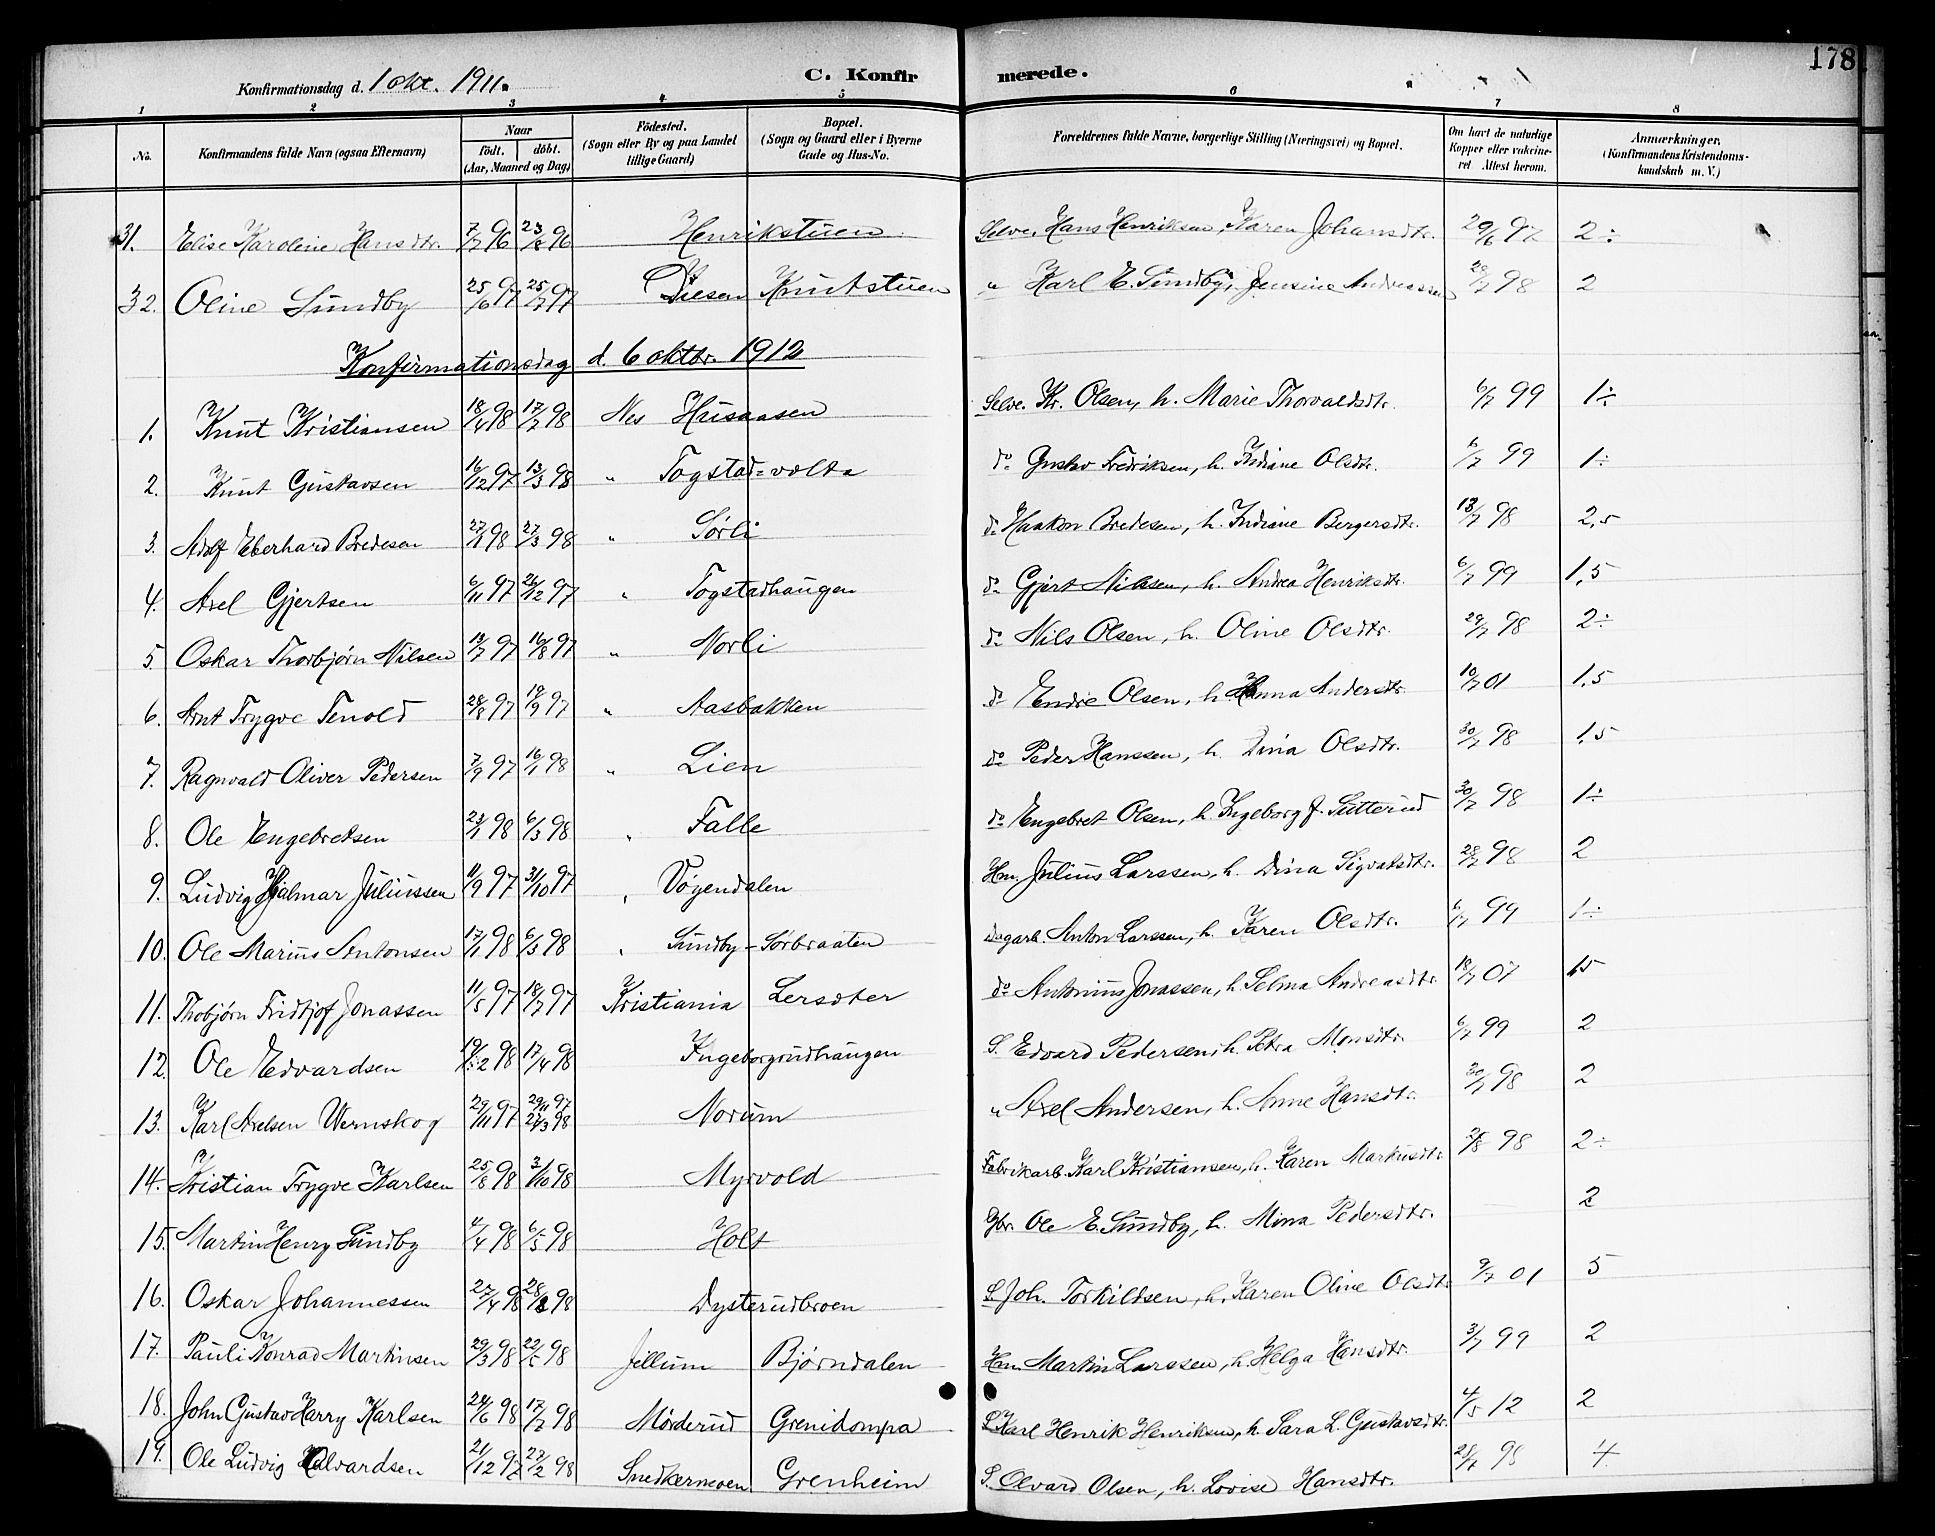 178
Konfirmationsdag d. 1 okt. 1911.
C. Konfirmerede.
1 2 3 4 5 6 7 8
No.
Konfirmandens fulde Navn (ogsaa Efternavn)
Naar
födt. döbt.
(Aar, Maaned og Dag)
Födested.
(Sogn eller By og paa Landet
tillige Gaard)
Bopæl.
(Sogn og Gaard eller i Byerne
Gade og Hus-No.
Forældrenes fulde Navne, borgerlige Stilling (Næringsvei) og Bopæl.
Om havt de naturlige
Kopper eller vakcine-
ret Attest herom.
Anmærkninger.
(Konfirmandens Kristendoms-
kundskab m. V.)
31. Elise Karoline Hansdtr. 7/7 96 23/8 96 Henrikstuen Selve. Hans Henriksen, Karen Johansdtr. 29/6 97 2÷
32. Oline Sundby 25/6 97 25/7 97 Diesen Knutstuen " Karl E. Sundby, Jensine Andreassen 98 2
Konfirmationsdag d. 6 oktbr. 1912
1. Knut Kristiansen 18/4 98 17/7 98 Nes Husaasen Selve. Kr. Olsen, h. Marie Thorvaldsdtr. 6/7 99 1÷
2. Knut Gustavsen 16/12 97 13/3 98 " Togstad=volta do Gustav Fredriksen, h. Indiane Olsdtr. 6/7 99 1÷
3. Adolf Eberhard Bredesen 27/1 98 27/3 98 " Sørli do Haakon Bredesen, h. Indiane Bergersdtr. 18/7 98 2,5
4. Axel Gjertsen 6/11 97 26/12 97 " Togstadhaugen do Gjert Nilssen, h. Andrea Henriksdtr. 6/7 99 1,5
5. Oskar Thorbjørn Nilsen 13/7 97 16/8 97 " Norli do Nils Olsen, h. Oline Olsdtr. 29/7 98 2÷
6. Arnt Trygve Tenold 28/8 97 19/9 97 " Aasbakken do Endre Olsen, h. Hanna Andersdtr. 10/7 01 1,5
7. Ragnvald Oliver Pedersen 7/9 97 16/1 98 " Lien do Peder Hanssen, h. Dina Olsdtr. 30/7 98 1,5
8. Ole Engebretsen 23/1 98 6/3 98 " Falle do Engebret Olsen, h. Ingeborg f. Sutterud 30/7 98 1÷
9. Ludvig Hjalmar Juliussen 11/9 97 31/10 97 " Vøyendalen Hm. Julius Larssen, h. Dina Sigvatsdtr. 28/7 98 2
10. Ole Marius Antonsen 17/1 98 6/3 98 " Sundby-Sørbraaten Dagarb. Anton Larssen, h. Karen Olsdtr. 6/7 99 1÷
11. Thobjørn Fridtjof Jonassen 11/5 97 18/7 97 Kristiania Lersdter do Antonius Jonassen, h. Selma Andreasdtr. 18/7 07 1,5
12. Ole Edvardsen 19/2 98 17/4 98 Ingeborgrudhaugen S. Edvard Pedersen, h. Petra Monsdtr. 6/7 99 2
13. Karl Axelsen Wernskog 29/11 97 29/11 97 27/3 98 Norum " Axel Andersen, h. Anne Hansdtr. 30/7 98 2
14. Kristian Trygve Karlsen 25/8 98 3/10 98 Myrvold Fabrikarb. Karl Kristiansen, h. Karen Markusdtr. 2/8 98 2÷
15. Martin Henry Sundby 4/4 98 6/5 98 Holt Gbr. Ole E. Sundby, h. Mina Pedersdtr. 2
16. Oskar Johannessen 27/4 98 28/8 98 Dysterudbroen S. Joh. Torkildsen, h. Karen Oline Olsdtr. 9/7 01 5
17. Pauli Konrad Martinsen 29/3 98 22/5 98 Jellum Bjørndalen Hm. Martin Larssen, h. Helga Hansdtr. 3/7 99 2
18. John Gustav Harry Karlsen 24/6 98 17/7 98 Mørderud Grenidompa S. Karl Henrik Henriksen, h. Sara L. Gustavsdtr. 4/5 12 2
19. Ole Ludvig Halvardsen 21/12 97 27/2 98 Snedkermoen Grenheim S. Olvard Olsen, h. Lovise Hansdtr. 98 4